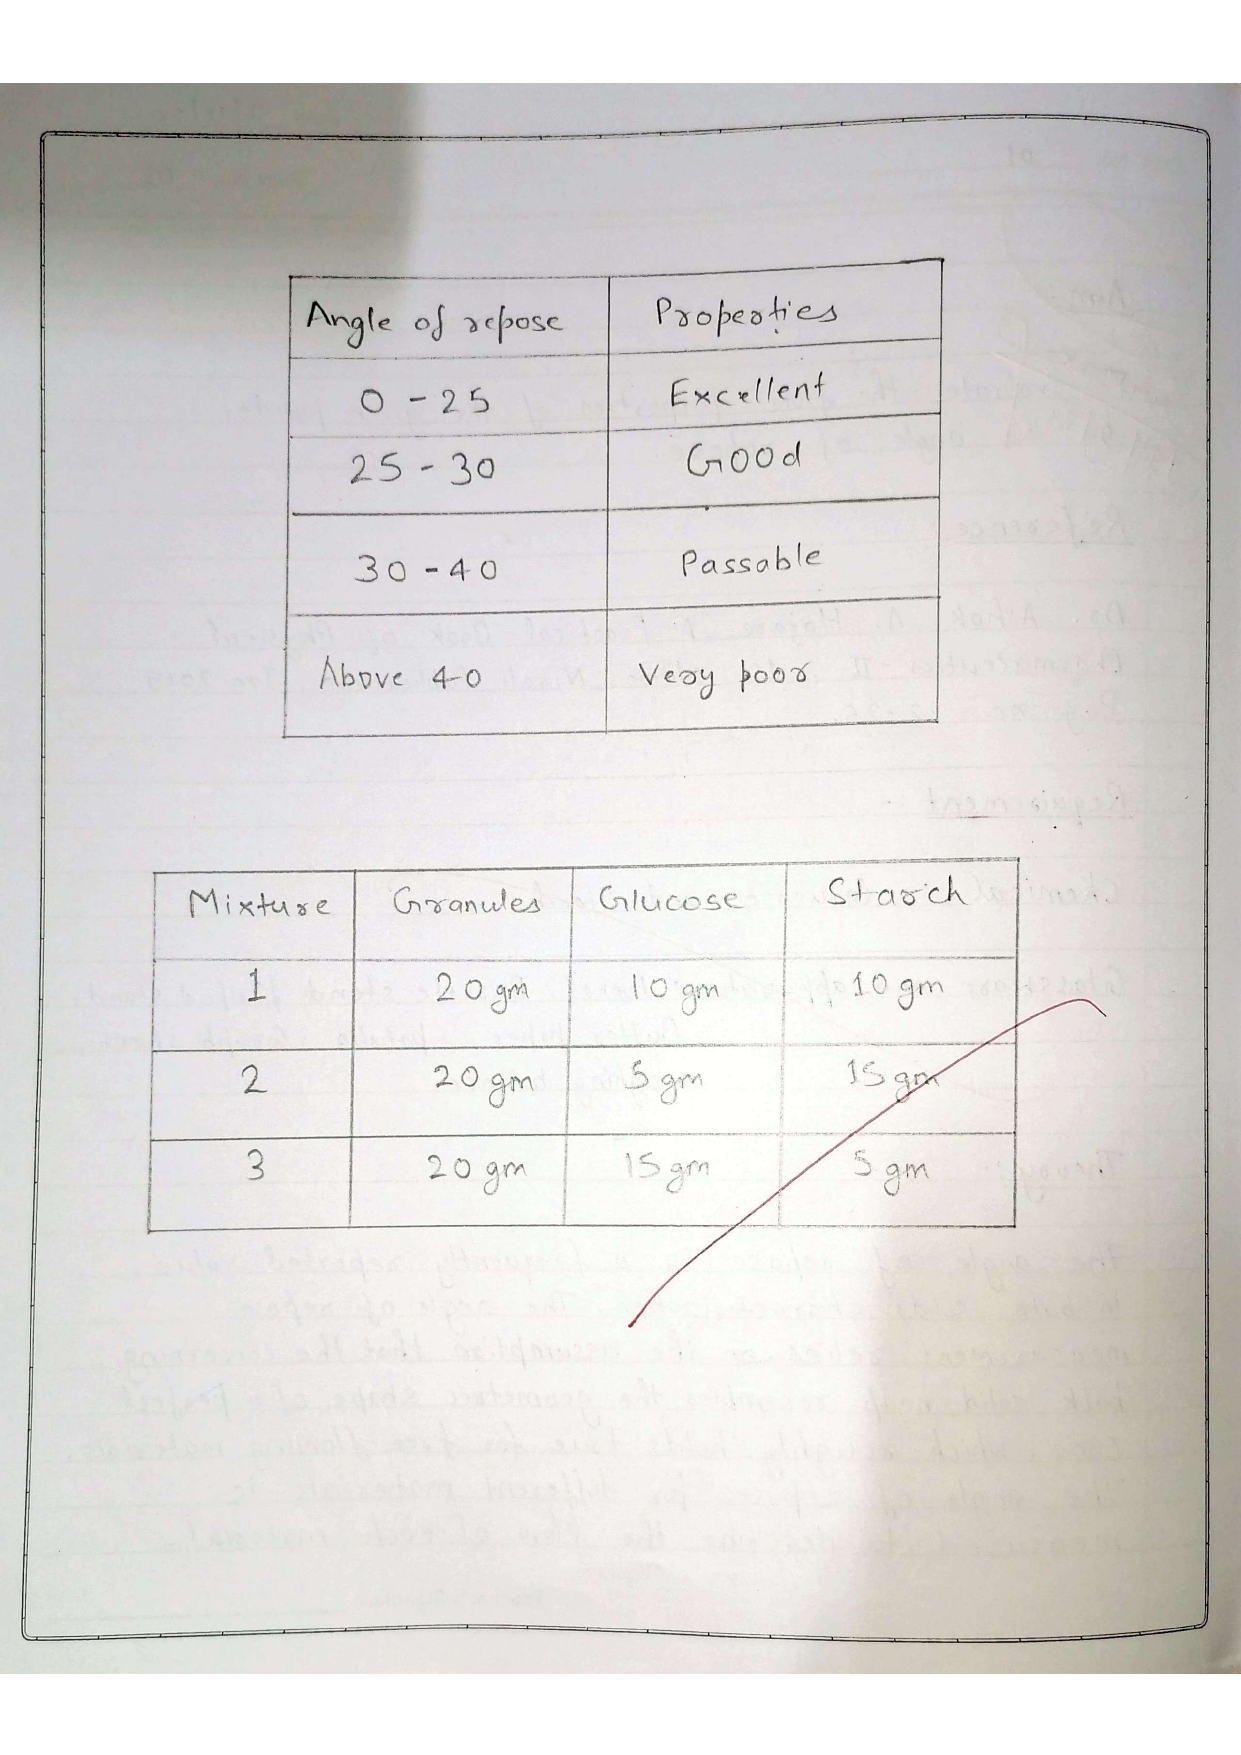 Angle of repose Properties
0 - 25 Excellent
25 - 30 Good
30 - 40 Passable
Above 40 Very poor
Mixture Granules Glucose Starch
1 20 gm 10 gm 10 gm
2 20 gm 5 gm 15 gm
3 20 gm 15 gm 5 gm